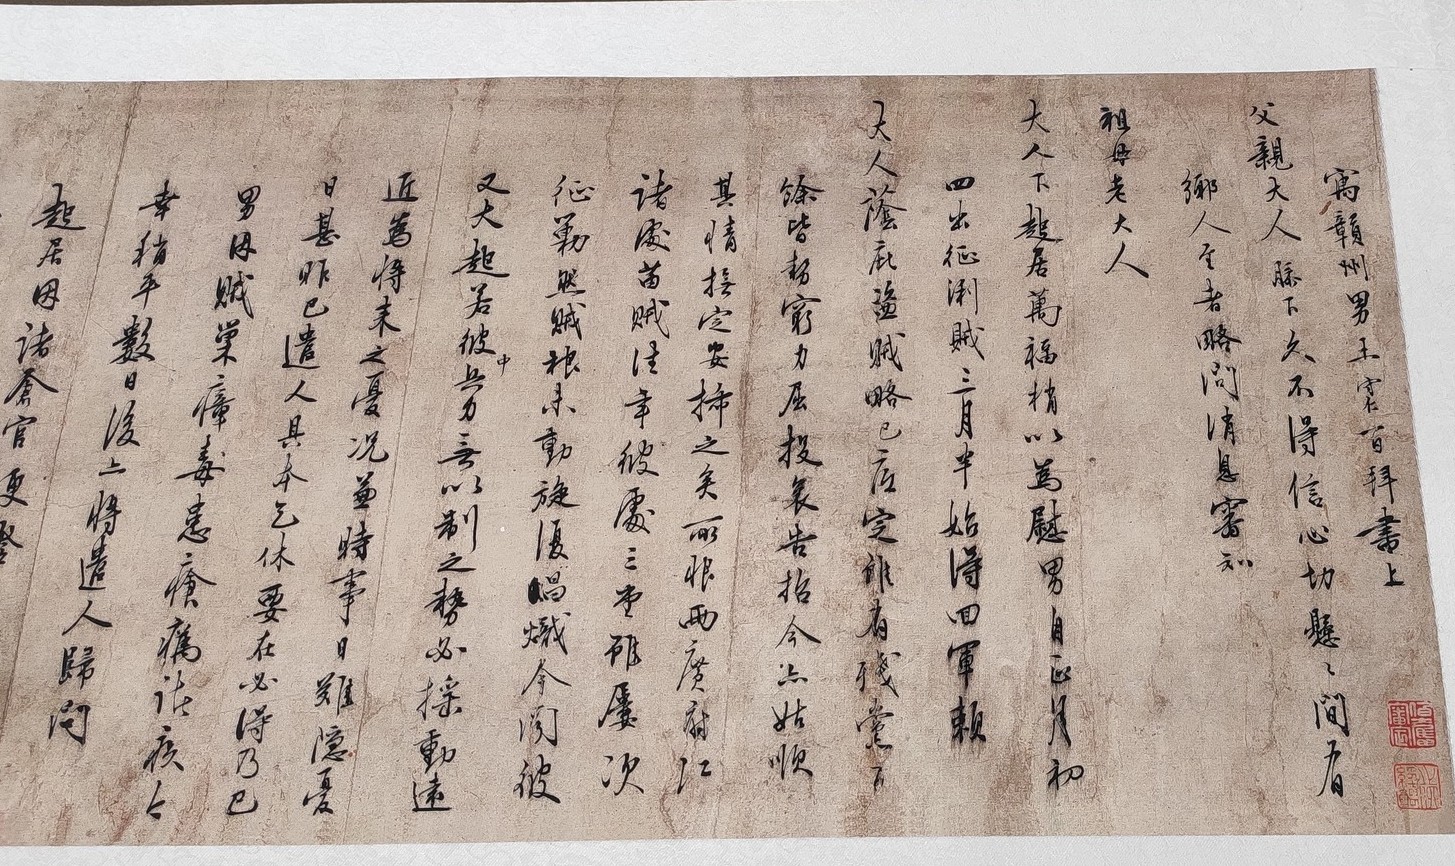 寓贛州男王守仁百拜書上
父親大人膝下久不得信心切懸々間有
鄉人至者略問消息審知
祖母老大人
大人下起居萬福稍以為慰男自正月初
四出征浰賊三月半始得回軍賴
大人蔭庇盜賊略已底定雖有殘黨百
餘皆勢窮力屈投哀告招今亦姑順
其情撫定安插之矣所恨兩廣府江
諸處苗賊往年彼處三堂雖屢次
征勦然賊根未動旋復昌熾今聞彼
又大起若彼中兵力無以制之勢必搖動遠
近為將來之憂況兼時事日難隱憂
日甚昨已遣人具本乞休要在必得乃已
男因賊巢瘴毒患瘡癘諸疾今
幸稍平數日後亦將遣人歸問
起居因諸倉官更